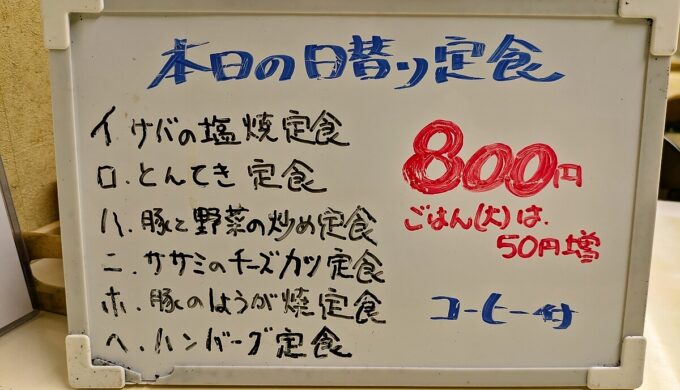 本日の日替り定食
イ.サバの塩焼定食
ロ.とんてき定食
ハ.豚と野菜の炒め定食
ニ.ササミのチーズカツ定食
ホ.豚のしょうが焼定食
ヘ.ハンバーグ定食
800円
ごはん(大)は
50円増
コーヒー付